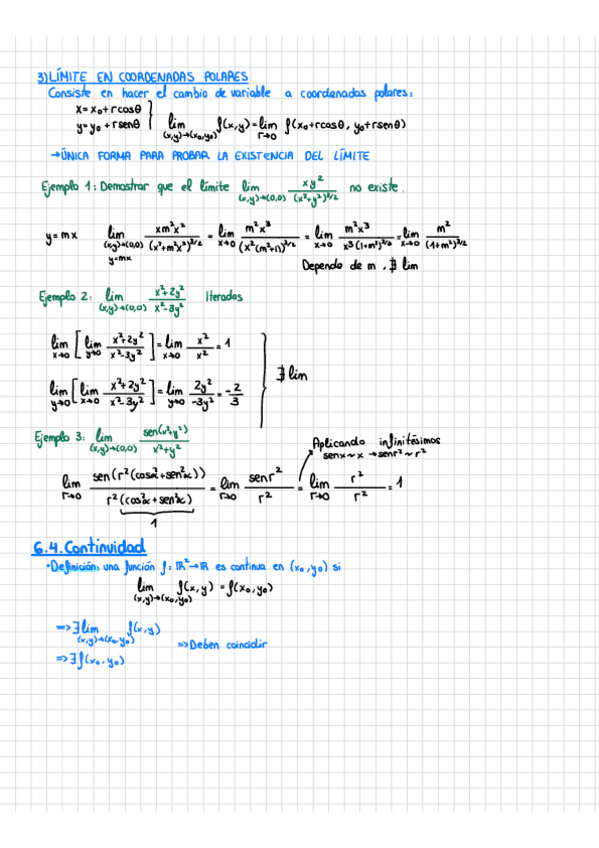 3) LÍMITE EN COORDENADAS POLARES
Consiste en hacer el cambio de variable a coordenadas polares:
x = x₀ + rcosθ
y = y₀ + rsenθ } lim (x,y)→(x₀,y₀) f(x,y) = lim r→0 f(x₀+rcosθ, y₀+rsenθ)
→ ÚNICA FORMA PARA PROBAR LA EXISTENCIA DEL LÍMITE
Ejemplo 1: Demostrar que el límite lim (x,y)→(0,0) xy²/(x²+y²)^3/2 no existe.
y = mx lim (x,y)→(0,0) y=mx xm²x²/(x²+m²x²)^3/2 = lim x→0 m²x³/(x²(m²+1))^3/2 = lim x→0 m²x³/x³(1+m²)^3/2 = lim x→0 m²/(1+m²)^3/2
Depende de m, ∄ lim
Ejemplo 2: lim (x,y)→(0,0) x²+2y²/x²-3y² Iterados
lim x→0 [lim y→0 x²+2y²/x²-3y²] = lim x→0 x²/x² = 1
∄ lim
lim y→0 [lim x→0 x²+2y²/x²-3y²] = lim y→0 2y²/-3y² = -2/3
Ejemplo 3: lim (x,y)→(0,0) sen(x²+y²)/x²+y²
Aplicando infinitésimos
senx ~ x → senr² ~ r²
lim r→0 sen(r²(cos²α+sen²α))/r²(cos²α+sen²α) = lim r→0 senr²/r² = lim r→0 r²/r² = 1
1
6.4. Continuidad
• Definición: una función f: ℝ²→ℝ es continua en (x₀,y₀) si
lim (x,y)→(x₀,y₀) f(x,y) = f(x₀,y₀)
=> ∃ lim (x,y)→(x₀,y₀) f(x,y)
=> Deben coincidir
=> ∃ f(x₀,y₀)